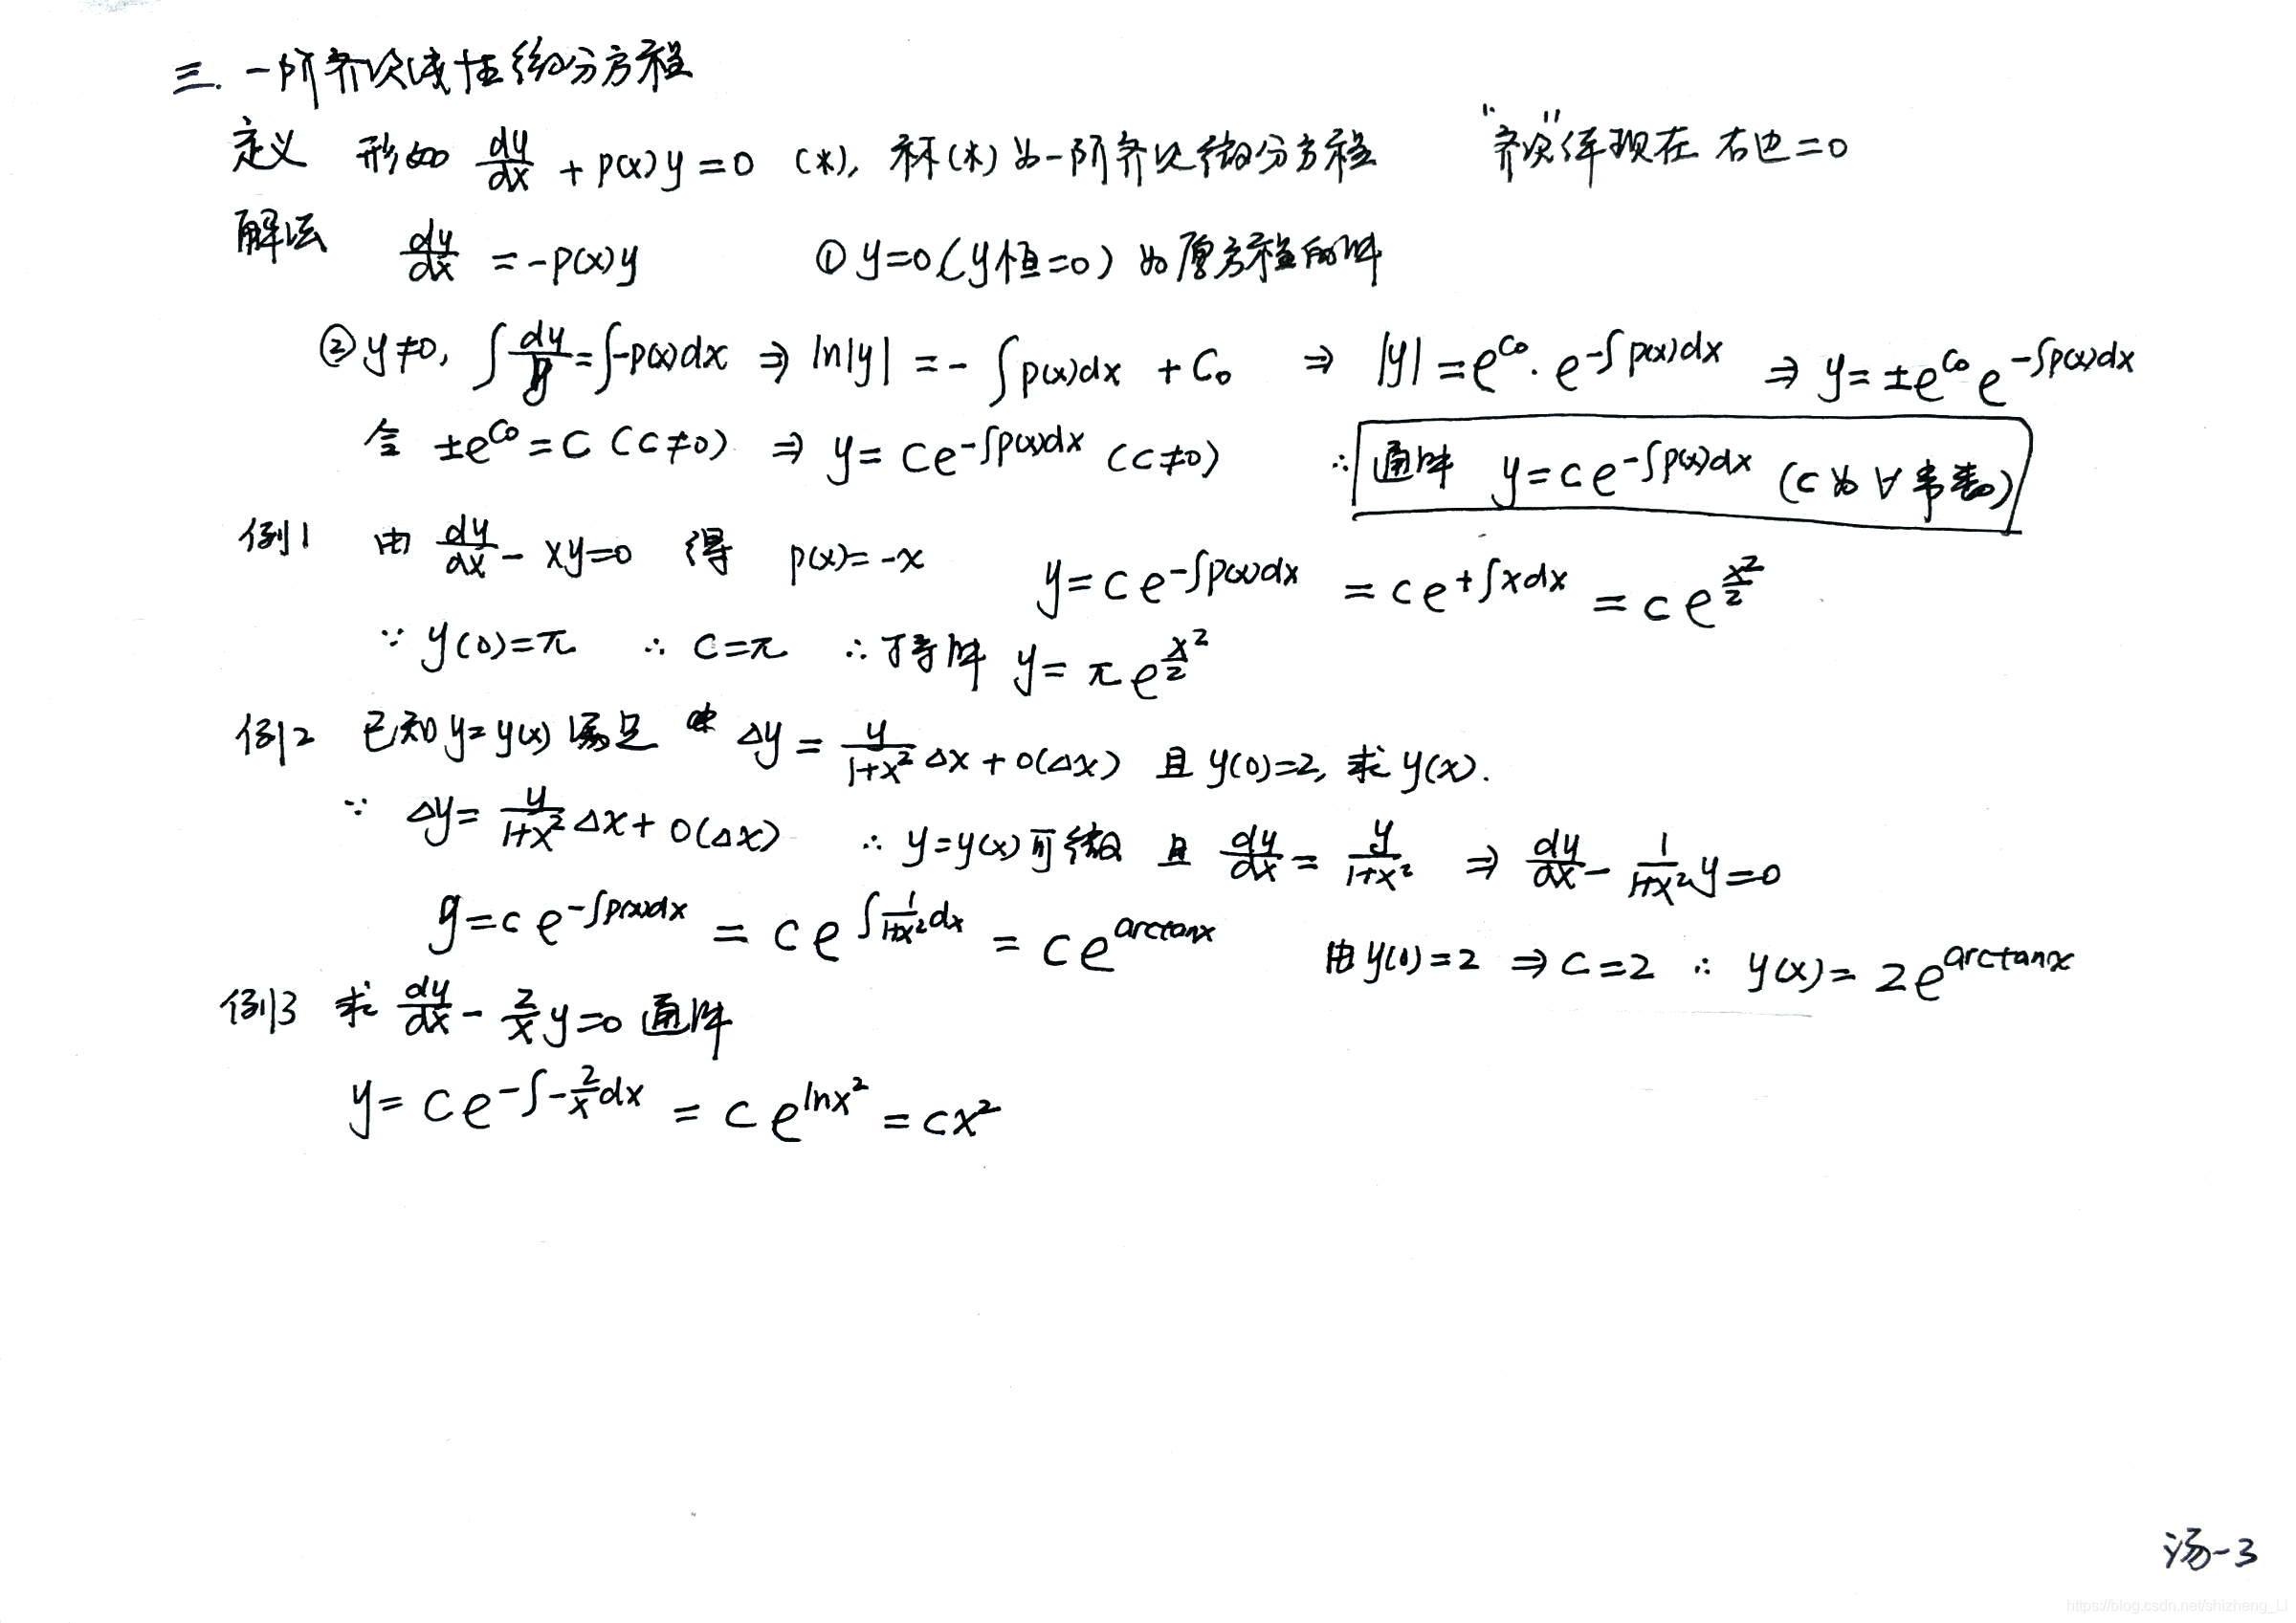 三. 一阶齐次线性微分方程
定义 形如 dy/dx + p(x)y = 0 (*), 称(*)为一阶齐次微分方程 "齐次"体现在 右边=0
解法 dy/dx = -p(x)y ① y=0 (y恒=0) 为原方程的解
② y≠0, ∫dy/y = ∫-p(x)dx ⇒ ln|y| = -∫p(x)dx + C₀ ⇒ |y| = e^{C₀}·e^{-∫p(x)dx} ⇒ y = ±e^{C₀}e^{-∫p(x)dx}
令 ±e^{C₀} = C (C≠0) ⇒ y = Ce^{-∫p(x)dx} (C≠0) ∴ 通解 y = Ce^{-∫p(x)dx} (C为∀常数)
例1 由 dy/dx - xy = 0 得 p(x) = -x y = Ce^{-∫p(x)dx} = Ce^{+∫xdx} = Ce^{x²/2}
∵ y(0)=π ∴ C=π ∴ 特解 y = πe^{x²/2}
例2 已知y=y(x)满足 Δy = y/(1+x²) Δx + o(Δx) 且 y(0)=2, 求y(x).
∵ Δy = y/(1+x²) Δx + o(Δx) ∴ y=y(x)可微 且 dy/dx = y/(1+x²) ⇒ dy/dx - 1/(1+x²) y = 0
y = Ce^{-∫p(x)dx} = Ce^{∫1/(1+x²)dx} = Ce^{arctanx} 由y(0)=2 ⇒ C=2 ∴ y(x) = 2e^{arctanx}
例3 求 dy/dx - 2/x y = 0 通解
y = Ce^{-∫-2/x dx} = Ce^{lnx²} = Cx²
汤-3
https://blog.csdn.net/shizheng_Li